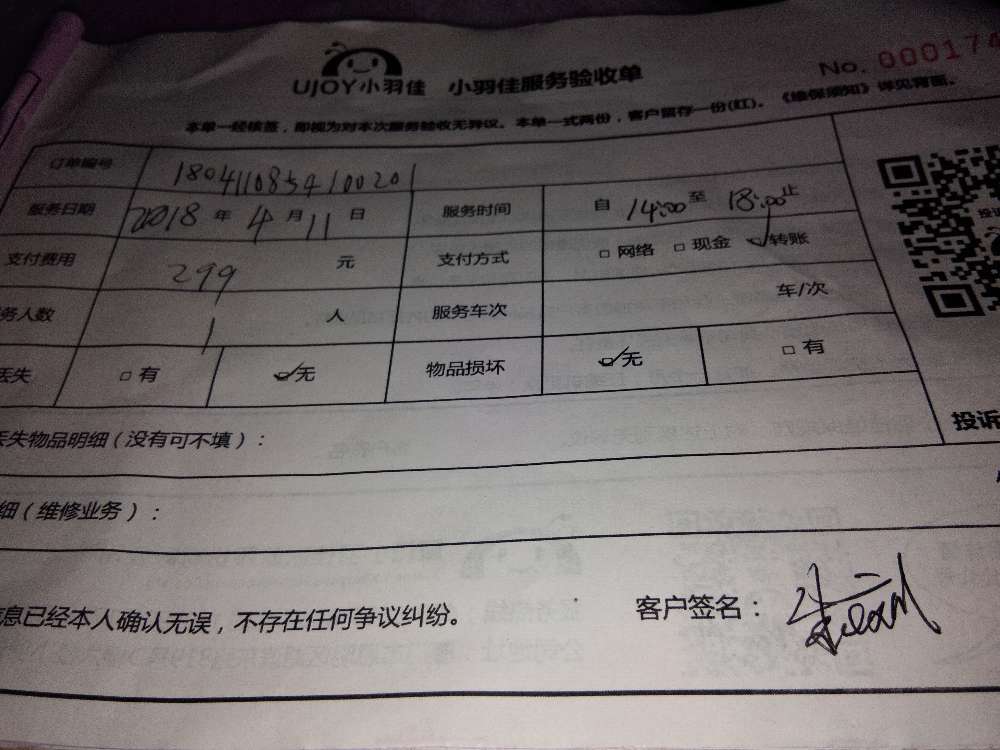 UJOY小羽佳 小羽佳服务验收单 No. 000174
本单一经核签，即视为对本次服务验收无异议。本单一式两份，客户留存一份(红)。《维保须知》详见背面。
订单编号 1804110854100201
服务日期 2018 年 4 月 11 日 服务时间 自 14:00 至 18:00 止
支付费用 299 元 支付方式 □ 网络 □ 现金 ☑ 转账
务人数 1 人 服务车次 车/次
丢失 □ 有 ☑ 无 物品损坏 ☑ 无 □ 有
丢失物品明细（没有可不填）：
投诉
细（维修业务）：
息已经本人确认无误，不存在任何争议纠纷。 客户签名：